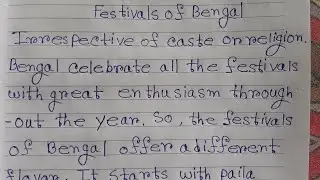 Festivals of Bengal
Irrespective of caste or religion.
Bengal celebrate all the festivals
with great enthusiasm through
-out the year. So, the festivals
of Bengal offer a different
flavor. It starts with paila